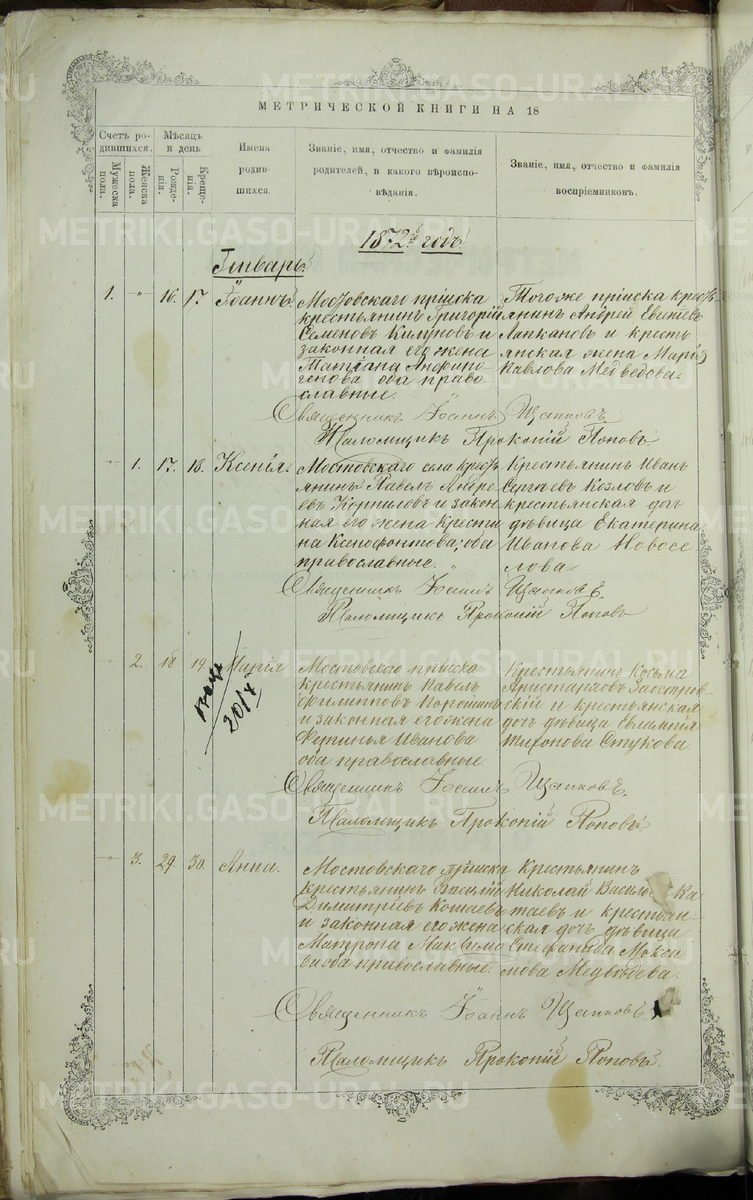 МЕТРИЧЕСКОЙ КНИГИ НА 18
Счетъ ро-
дившихся.
Мѣсяцъ
и день
Имена
родив-
шихся.
Званіе, имя, отчество и фамилія
родителей, и какого вѣроиспо-
вѣданія.
Званіе, имя, отчество и фамилія
воспріемниковъ.
Мужеска
пола.
Женска
пола.
Рожде-
нія.
Креще-
нія.
1872й годъ.
Январь.
1. " 16. 17. Іоаннъ.
Мостовскаго пріиска
крестьянинъ Григорій
Семеновъ и
законная его жена
Татіана
генова оба право
славные.
Тогоже пріиска кресть
янинъ Андрей Евгеніевъ
Лапкановъ и кресть
янская жена Марія
Павлова Медведева.
Священникъ Іоаннъ Щапковъ.
Псаломщикъ Прокопій Поповъ.
" 1. 17. 18. Ксенія.
Мостовскаго села кресть
янинъ Павелъ Андре
евъ Корниловъ и закон
ная его жена Кресті
на Ксенофонтова, оба
православные. "
Крестьянинъ Иванъ
Сергѣевъ Козловъ и
крестьянская доч
дѣвица Екатерина
Иванова Новосе
лова
Священникъ Іоаннъ Щапковъ
Псаломщикъ Прокопій Поповъ
" 2. 18 19. Марія
2014
Мостовскаго пріиска
крестьянинъ Павелъ
Филипповъ Порошинъ
и законная его жена
Фетинья Иванова
оба православные.
Крестьянинъ Косьма
Аристарховъ Заостров
скій и крестьянская
дочь дѣвица Евлампія
Тихонова Стукова
Священникъ Іоаннъ Щапковъ.
Псаломщикъ Прокопій Поповъ.
" 3. 29. 30. Анна.
Мостовскаго пріиска
крестьянинъ Василій
Димитріевъ Кошаевъ
и законная его жена
Матрона Максимо
ва оба православные.
Крестьянинъ
Николай Ка
таевъ и крестьян
ская дочь дѣвица
Стефанида Макси
мова Медвѣдева.
Священникъ Іоаннъ Щапковъ
Псаломщикъ Прокопій Поповъ.
METRIKI.GASO-URAL.RU